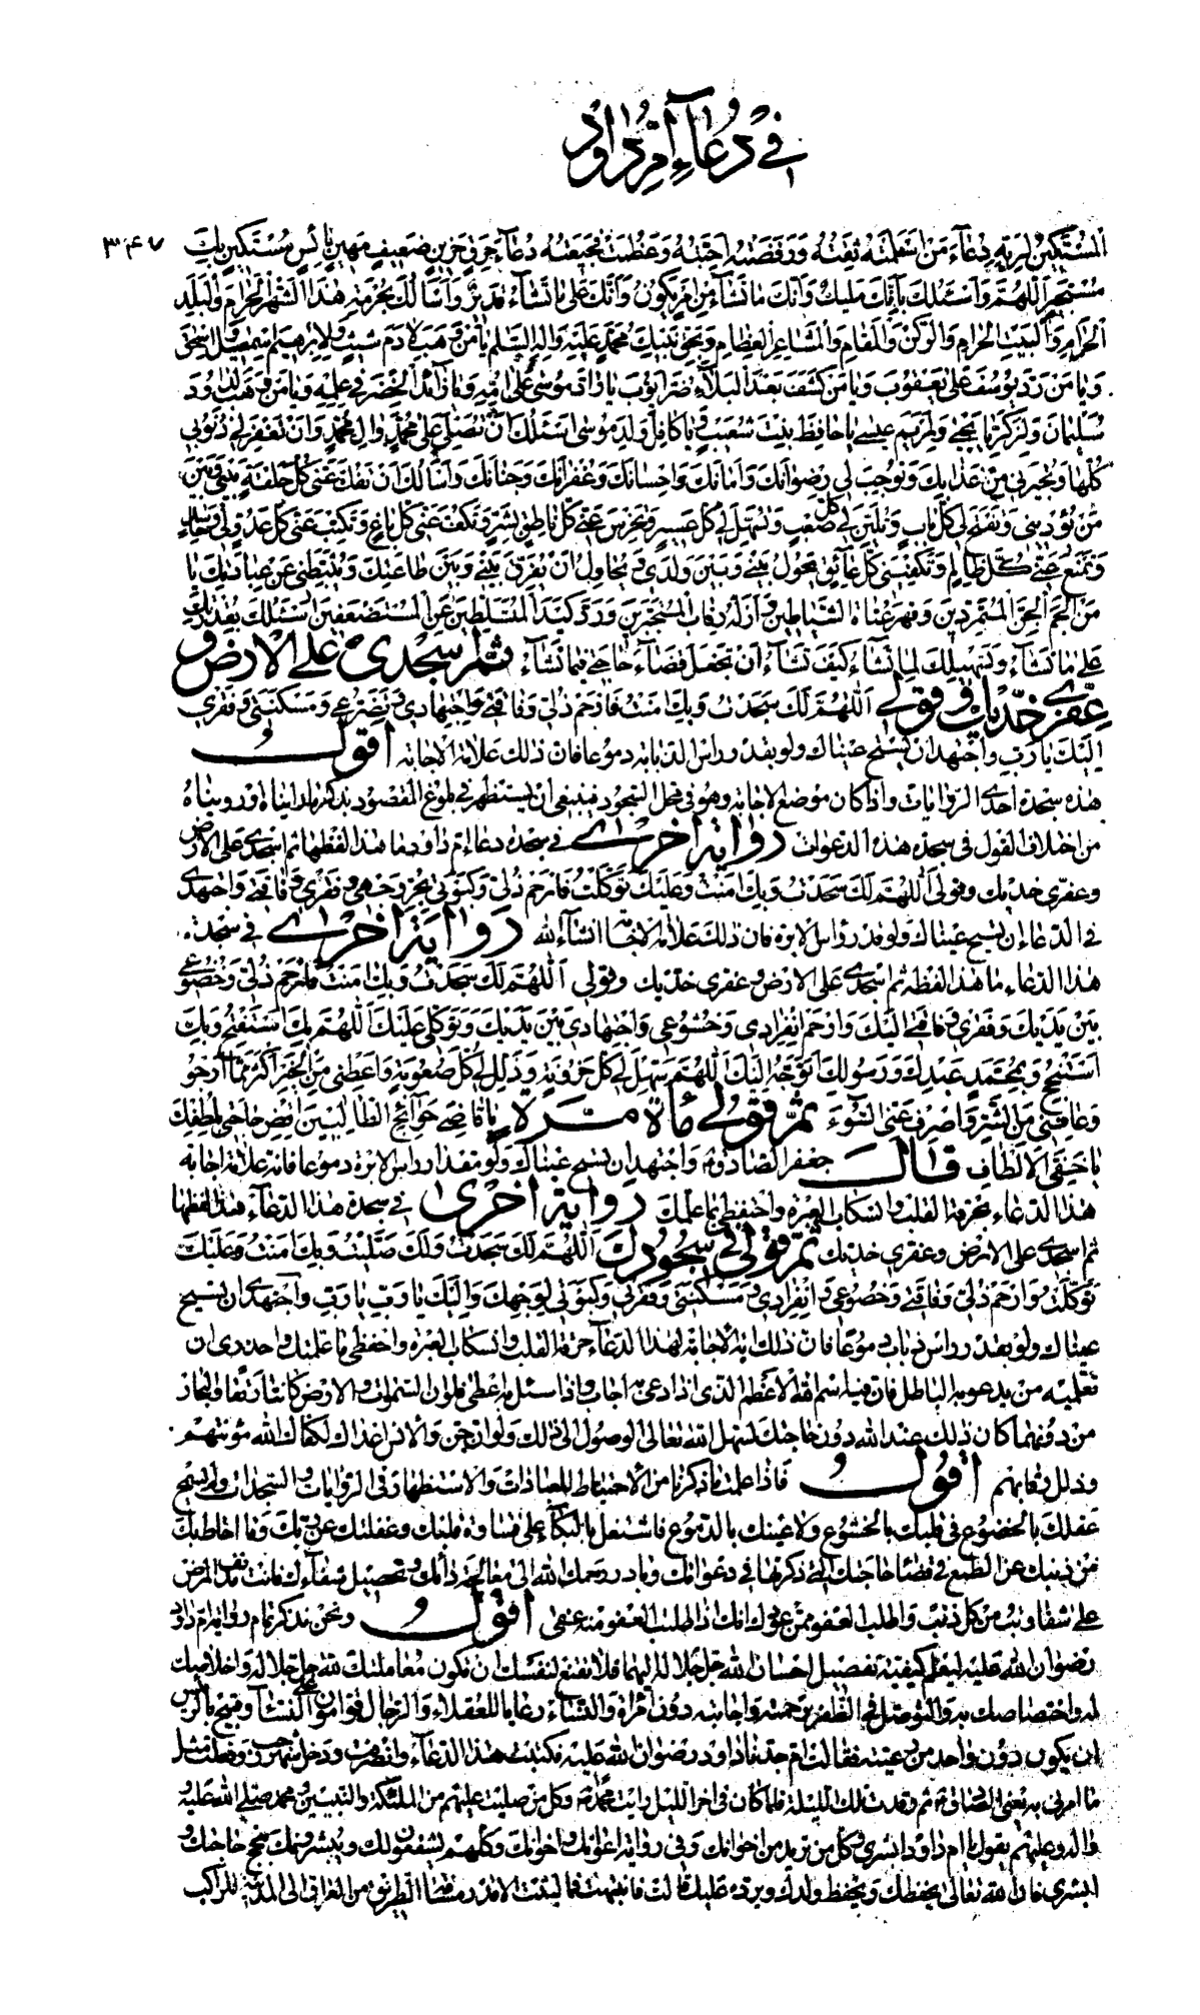 في دُعآءِ أمّ داود
٣٤٧
المُسْتَكينِ لِرَبِّهِ دُعآءَ مَنْ اَسْلَمَتْهُ ثِقَتُهُ وَرَفَضَتْهُ اَحِبَّتُهُ وَعَظُمَتْ فَجيعَتُهُ دُعآءَ حَرِقٍ حَزينٍ ضَعيفٍ مَهينٍ بآئِسٍ مُسْتَكينٍ بِكَ
مُسْتَجيرٍ اَللّهُمَّ وَاَسْئَلُكَ بِاَنَّكَ مَليكٌ وَاَنَّكَ ما تَشآءُ مِنْ اَمْرٍ يَكُونُ وَاَنَّكَ عَلى ما تَشآءُ قَديرٌ وَاَسْأَلُكَ بِحُرْمَةِ هذَا الشَّهْرِ الْحَرامِ وَالْبَلَدِ
الْحَرامِ وَالْبَيْتِ الْحَرامِ وَالرُّكْنِ وَالْمَقامِ وَالْمَشاعِرِ الْعِظامِ وَبِحَقِّ نَبِيِّكَ مُحَمَّدٍ عَلَيْهِ وَالِهِ السَّلامُ يا مَنْ وَهَبَ لِادَمَ شيث وَلِاِبْرهيمَ اِسْمعيلَ وَاِسْحقَ
وَيا مَنْ رَدَّ يُوسُفَ عَلى يَعْقُوبَ وَيا مَنْ كَشَفَ بَعْدَ الْبَلآءِ ضُرَّ اَيُّوبَ يا رآدَّ مُوسى عَلى اُمِّهِ وَيا زآئِدَ الْخِضْرِ في عِلْمِهِ وَيا مَنْ وَهَبَ لِداوُدَ
سُلَيْمانَ وَلِزَكَرِيّا يَحْيى وَلِمَرْيَمَ عيسى يا حافِظَ بِنْتِ شُعَيْبٍ وَيا كافِلَ وَلَدِ مُوسى اَسْئَلُكَ اَنْ تُصَلِّيَ عَلى مُحَمَّدٍ وَالِ مُحَمَّدٍ وَاَنْ تَغْفِرَ لي ذُنُوبي
كُلَّها وَتُجيرَني مِنْ عَذابِكَ وَتُوجِبَ لي رِضْوانَكَ وَاَمانَكَ وَاِحْسانَكَ وَغُفْرانَكَ وَجِنانَكَ وَاَسْأَلُكَ اَنْ تَفُكَّ عَنّي كُلَّ حَلْقَةٍ بَيْني وَبَيْنَ
مَنْ يُؤْذيني وَتَفْتَحَ لي كُلَّ بابٍ وَتُلَيِّنَ لي كُلَّ صَعْبٍ وَتُسَهِّلَ لي كُلَّ عَسيرٍ وَتُخْرِسَ عَنّي كُلَّ ناطِقٍ بِشَرٍّ وَتَكُفَّ عَنّي كُلَّ باغٍ وَتَكْبِتَ عَنّي كُلَّ عَدُوٍّ لي وَحاسِدٍ
وَتَمْنَعَ عَنّي كُلَّ ظالِمٍ وَتَكْفِيَني كُلَّ عآئِقٍ يَحُولُ بَيْني وَبَيْنَ وَلَدي وَيُحاوِلُ اَنْ يُفَرِّقَ بَيْني وَبَيْنَ طاعَتِكَ وَيُثَبِّطَني عَنْ عِبادَتِكَ يا
مَنْ اَلْجَمَ الْجِنَّ الْمُتَمَرِّدينَ وَقَهَرَ عُتاةَ الشَّياطينِ وَاَذَلَّ رِقابَ الْمُتَجَبِّرينَ وَرَدَّ كَيْدَ الْمُتَسَلِّطينَ عَنِ الْمُسْتَضْعَفينَ اَسْئَلُكَ بِقُدْرَتِكَ
عَلى ما تَشآءُ وَتَسْهيلِكَ لِما تَشآءُ كَيْفَ تَشآءُ اَنْ تَجْعَلَ قَضآءَ حاجَتي فيما تَشآءُ ثُمَّ اسْجُدي عَلَى الْاَرْضِ وَ
عَفِّري خَدَّيْكِ وَقُولي اَللّهُمَّ لَكَ سَجَدْتُ وَبِكَ امَنْتُ فَارْحَمْ ذُلّي وَفاقَتي وَاجْتِهادي وَتَضَرُّعي وَمَسْكَنَتي وَفَقْري
اِلَيْكَ يا رَبِّ واجتهدي ان تسحّ عيناك ولو بقدر راس الذبابة دموعا فان ذلك علامة الاجابة اقول
هذه سجدة احدى الروايات واذا كان موضع الاجابة وهو في محل السجود فينبغي ان يستظهر في بلوغ المقصود بذكر ما رايناه او رويناه
من اختلاف القول في سجدة هذه الدعوات رواية اخرى في سجدة دعاء ام داود ما هذا لفظها ثم اسجدي على الارض
وعفّري خدّيك وقولي اَللّهُمَّ لَكَ سَجَدْتُ وَبِكَ امَنْتُ وَعَلَيْكَ تَوَكَّلْتُ فَارْحَمْ ذُلّي وَكَبْوَتي لِحُرِّ وَجْهي وَفَقْري وَفاقَتي واجتهدي
في الدعاء ان تسح عيناك ولو قدر راس الابرة فان ذلك علامة الاجابة انشآء الله رواية اخرى في سجدة
هذا الدعاء ما هذا لفظه ثم اسجدي على الارض وعفري خديك وقولي اَللّهُمَّ لَكَ سَجَدْتُ وَبِكَ امَنْتُ فَارْحَمْ ذُلّي وَخُضُوعي
بَيْنَ يَدَيْكَ وَفَقْري وَفاقَتي اِلَيْكَ وَارْحَمِ انْفِرادي وَخُشُوعي وَاجْتِهادي بَيْنَ يَدَيْكَ وَتَوَكُّلي عَلَيْكَ اَللّهُمَّ بِكَ اَسْتَفْتِحُ وَبِكَ
اَسْتَنْجِحُ وَبِمُحَمَّدٍ عَبْدِكَ وَرَسُولِكَ اَتَوَجَّهُ اِلَيْكَ اَللّهُمَّ سَهِّلْ لي كُلَّ حُزُونَةٍ وَذَلِّلْ لي كُلَّ صُعُوبَةٍ وَاَعْطِني مِنَ الْخَيْرِ اَكْثَرَ مِمّا اَرْجُو
وَعافِني مِنَ الشَّرِّ وَاصْرِفْ عَنِّي السُّوءَ ثُمَّ قُولي مائة مَرَّة يا قاضِيَ حَوآئِجِ الطّالِبينَ اِقْضِ حاجَتي بِلُطْفِكَ
يا خَفِيَّ الْاَلْطافِ قال جعفر الصادق واجتهدي ان تسح عيناك ولو مقدار راس الابرة دموعا فانه علامة اجابة
هذا الدعاء بحرقة القلب وانسكاب العبرة واحتفظي بما علمتك رواية اخرى في سجدة هذا الدعآء هذا لفظها
ثم اسجدي على الارض وعفري خديك ثم قولي في سجودك اَللّهُمَّ لَكَ سَجَدْتُ وَلَكَ صَلَّيْتُ وَبِكَ امَنْتُ وَعَلَيْكَ
تَوَكَّلْتُ وَارْحَمْ ذُلّي وَفاقَتي وَخُضُوعي وَانْفِرادي وَمَسْكَنَتي وَفَقْري وَكَبْوَتي لِوَجْهِكَ وَاِلَيْكَ يا رَبِّ يا رَبِّ واجتهدي ان تسيح
عيناك ولو بقدر راس ذباب دموعا فان ذلك اية الاجابة لهذا الدعآء حرقة القلب وانسكاب العبرة واحفظي ما علمتك واحذري ان
تعلميه من يدعو به لباطل فان فيه اسم الله الاعظم الذي اذا دعي به اجاب واذا سئل به اعطى فلو ان السموات والارض كانتا رتقا والبحار
من دونهما كان ذلك عند الله دون حاجتك لسهل الله تعالى الوصول الى ذلك ولو ان الجن والانس اعداك لكفاك الله مؤنتهم
وذلل رقابهم اقول فاذا علمت ما ذكرنا من الاحتياط للعبادات والاستظهار في الروايات والسجدات ولم يسمح
عقلك بالخضوع في قلبك بالخشوع ولا عينك بالدموع فاشتغل بالبكآء على قساوة قلبك وغفلتك عن ربك وما احاط بك
من ذنبك عن الطمع في قضاء حاجتك التي ذكرتها في دعواتك وبادر رحمك الله الى معالجة دائك وتحصيل شفآءك فانت مدنف المرض
على شفا وتب من كل ذنب واطلب العفو ممن عودك انك اذا طلبت العفو منه عفى اقول ونحن نذكر تمام رواية ام داود
رضوان الله عليه ليعلم كيفية تفصيل احسان الله جل جلاله اليهما فلا تقنع لنفسك ان تكون معاملتك لله جل جلاله واخلاصك
له واختصاصك به والتوصل في الظفر برحمته واجابته دون امراة والنساء رعايا للعقلاء والرجال قوامون على النسآء وقبيح بالرئيس
ان يكون دون واحد من رعيته فقالت ام جدنا داود رضوان الله عليه فكتبت هذا الدعآء وانصرفت ودخل شهر رجب وفعلت مثل
ما امرني به يعني الصادق ثم رقدت تلك الليلة فلما كان في اخر الليل رايت محمدا وكل من صليت عليهم من الملئكة والنبيين ومحمد صلى الله عليه
واله وعليهم يقول يا ام داود ابشري وكل من ترين من اخوانك وفي رواية اعوانك واخوانك وكلهم يشفعون لك ويبشرونك بنجح حاجتك و
ابشري فان الله تعالى يحفظك ويحفظ ولدك ويرده عليك قالت فانتبهت فما لبثت الا قدر مسافة الطريق من العراق الى المدينة للراكب